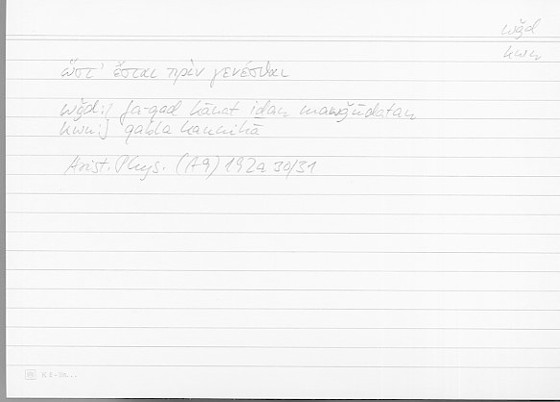 wǧd
kwn
ὥστ' ἔσται πρὶν γενέσθαι
wǧd:] fa-qad kānat idan mawǧūdatan
kwn:] qabla kaunihā
Arist. Phys. (A9) 192a 30/31